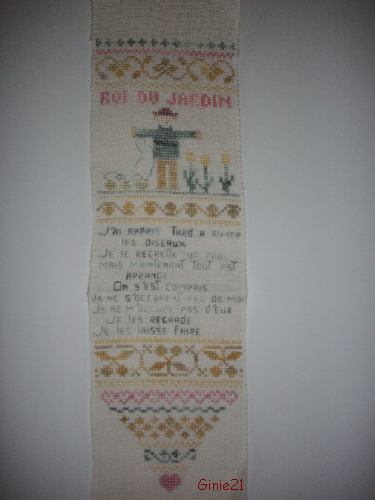 ROI DU JARDIN
J'AI APPRIS TARD A AIMER
LES OISEAUX
JE LE REGRETTE UN PEU
MAIS MAINTENANT TOUT EST
ARRANGE
ON S'EST COMPRIS
ILS NE S'OCCUPENT PAS DE MOI
JE NE M'OCCUPE PAS D'EUX
JE LES REGARDE
JE LES LAISSE FAIRE
Ginie21